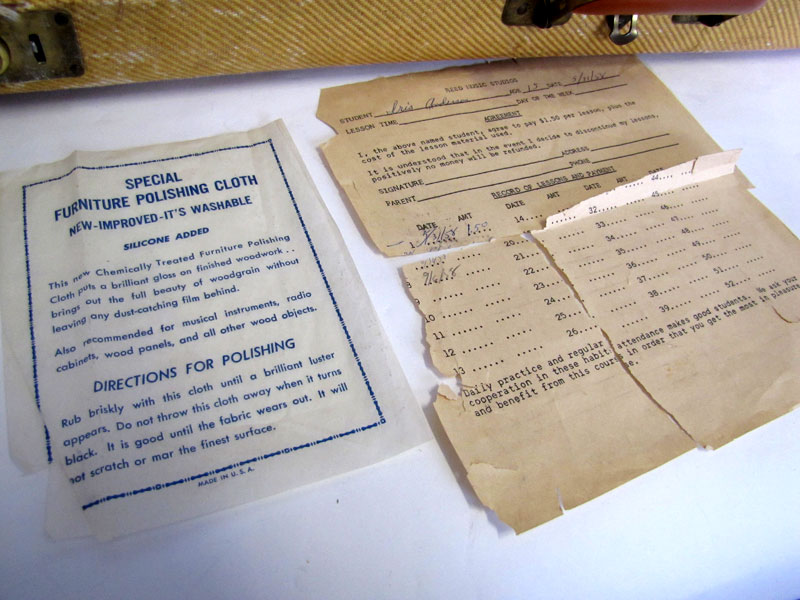 SPECIAL
FURNITURE POLISHING CLOTH
NEW-IMPROVED-IT'S WASHABLE
SILICONE ADDED
This new Chemically Treated Furniture Polishing
Cloth puts a brilliant gloss on finished woodwork . .
brings out the full beauty of woodgrain without
leaving any dust-catching film behind.
Also recommended for musical instruments, radio
cabinets, wood panels, and all other wood objects.
DIRECTIONS FOR POLISHING
Rub briskly with this cloth until a brilliant luster
appears. Do not throw this cloth away when it turns
black. It is good until the fabric wears out. It will
not scratch or mar the finest surface.
MADE IN U.S.A.
REED MUSIC STUDIOS
STUDENT Iris AGE 15 DATE
LESSON TIME DAY OF THE WEEK
AGREEMENT
I, the above named student, agree to pay $1.50 per lesson, plus the
cost of the lesson material used.
It is understood that in the event I decide to discontinue my lessons,
positively no money will be refunded.
SIGNATURE ADDRESS
PARENT PHONE
RECORD OF LESSONS AND PAYMENT
DATE AMT DATE AMT DATE AMT DATE
1 1.50 14... ...... 32... 45...
20... 33... 46...
8 21... 34... 48...
9 22... 35... 49...
10 23... 36... 50...
11 24... 37... 51...
12 25... 38... 52...
13 26... 39...
Daily practice and regular attendance makes good students. We ask your
cooperation in these habits in order that you get the most in pleasure
and benefit from this course.